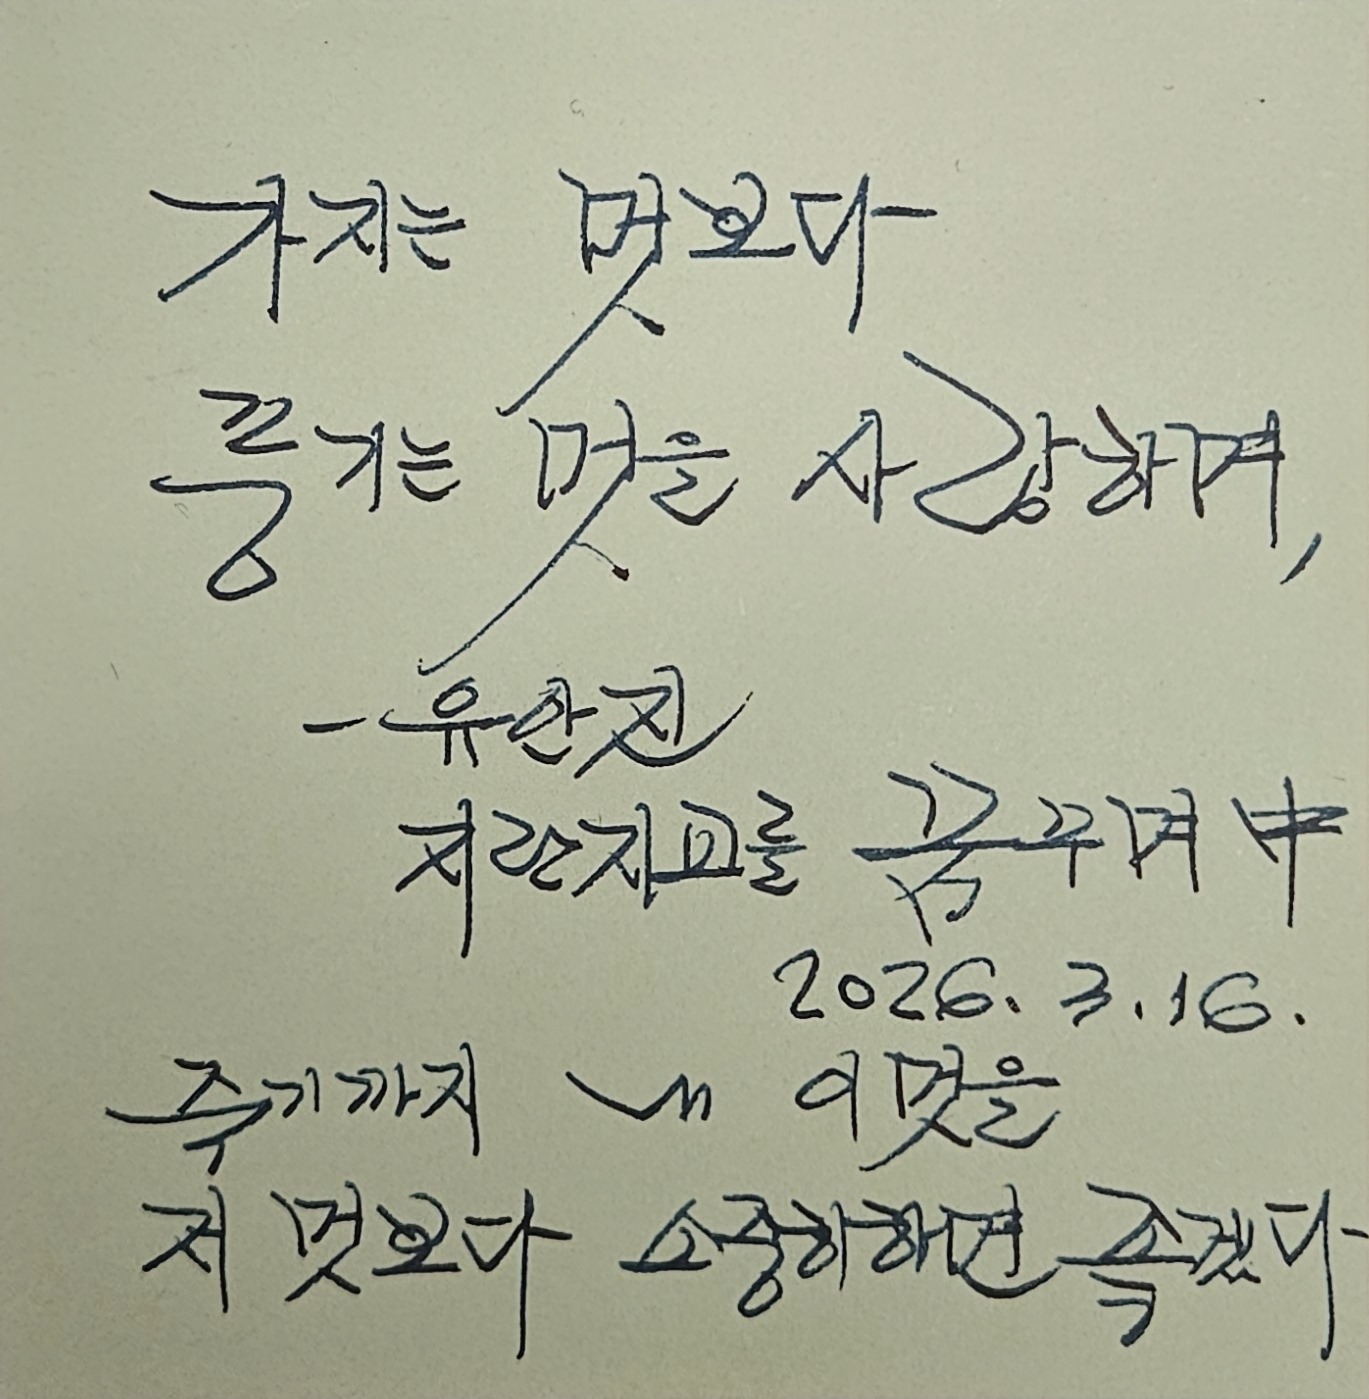 가지는 멋보다
풍기는 멋을 사랑하며,
- 유안진
지란지교를 꿈꾸며 中
2026. 3. 16.
죽기까지 내 이 멋을
저 멋보다 소중히하면 좋겠다